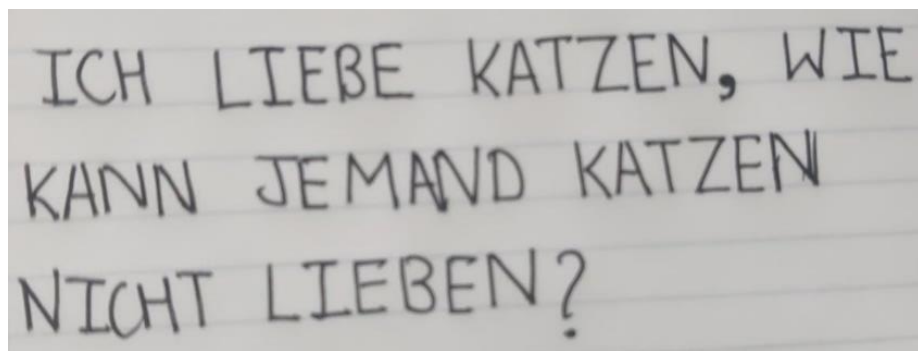 ICH LIEBE KATZEN, WIE
KANN JEMAND KATZEN
NICHT LIEBEN?